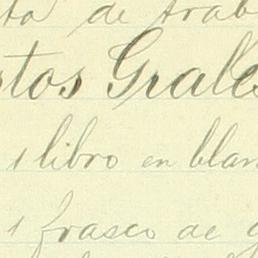 ta de trab
stos Grales
1 libro en blan
1 frasco de g